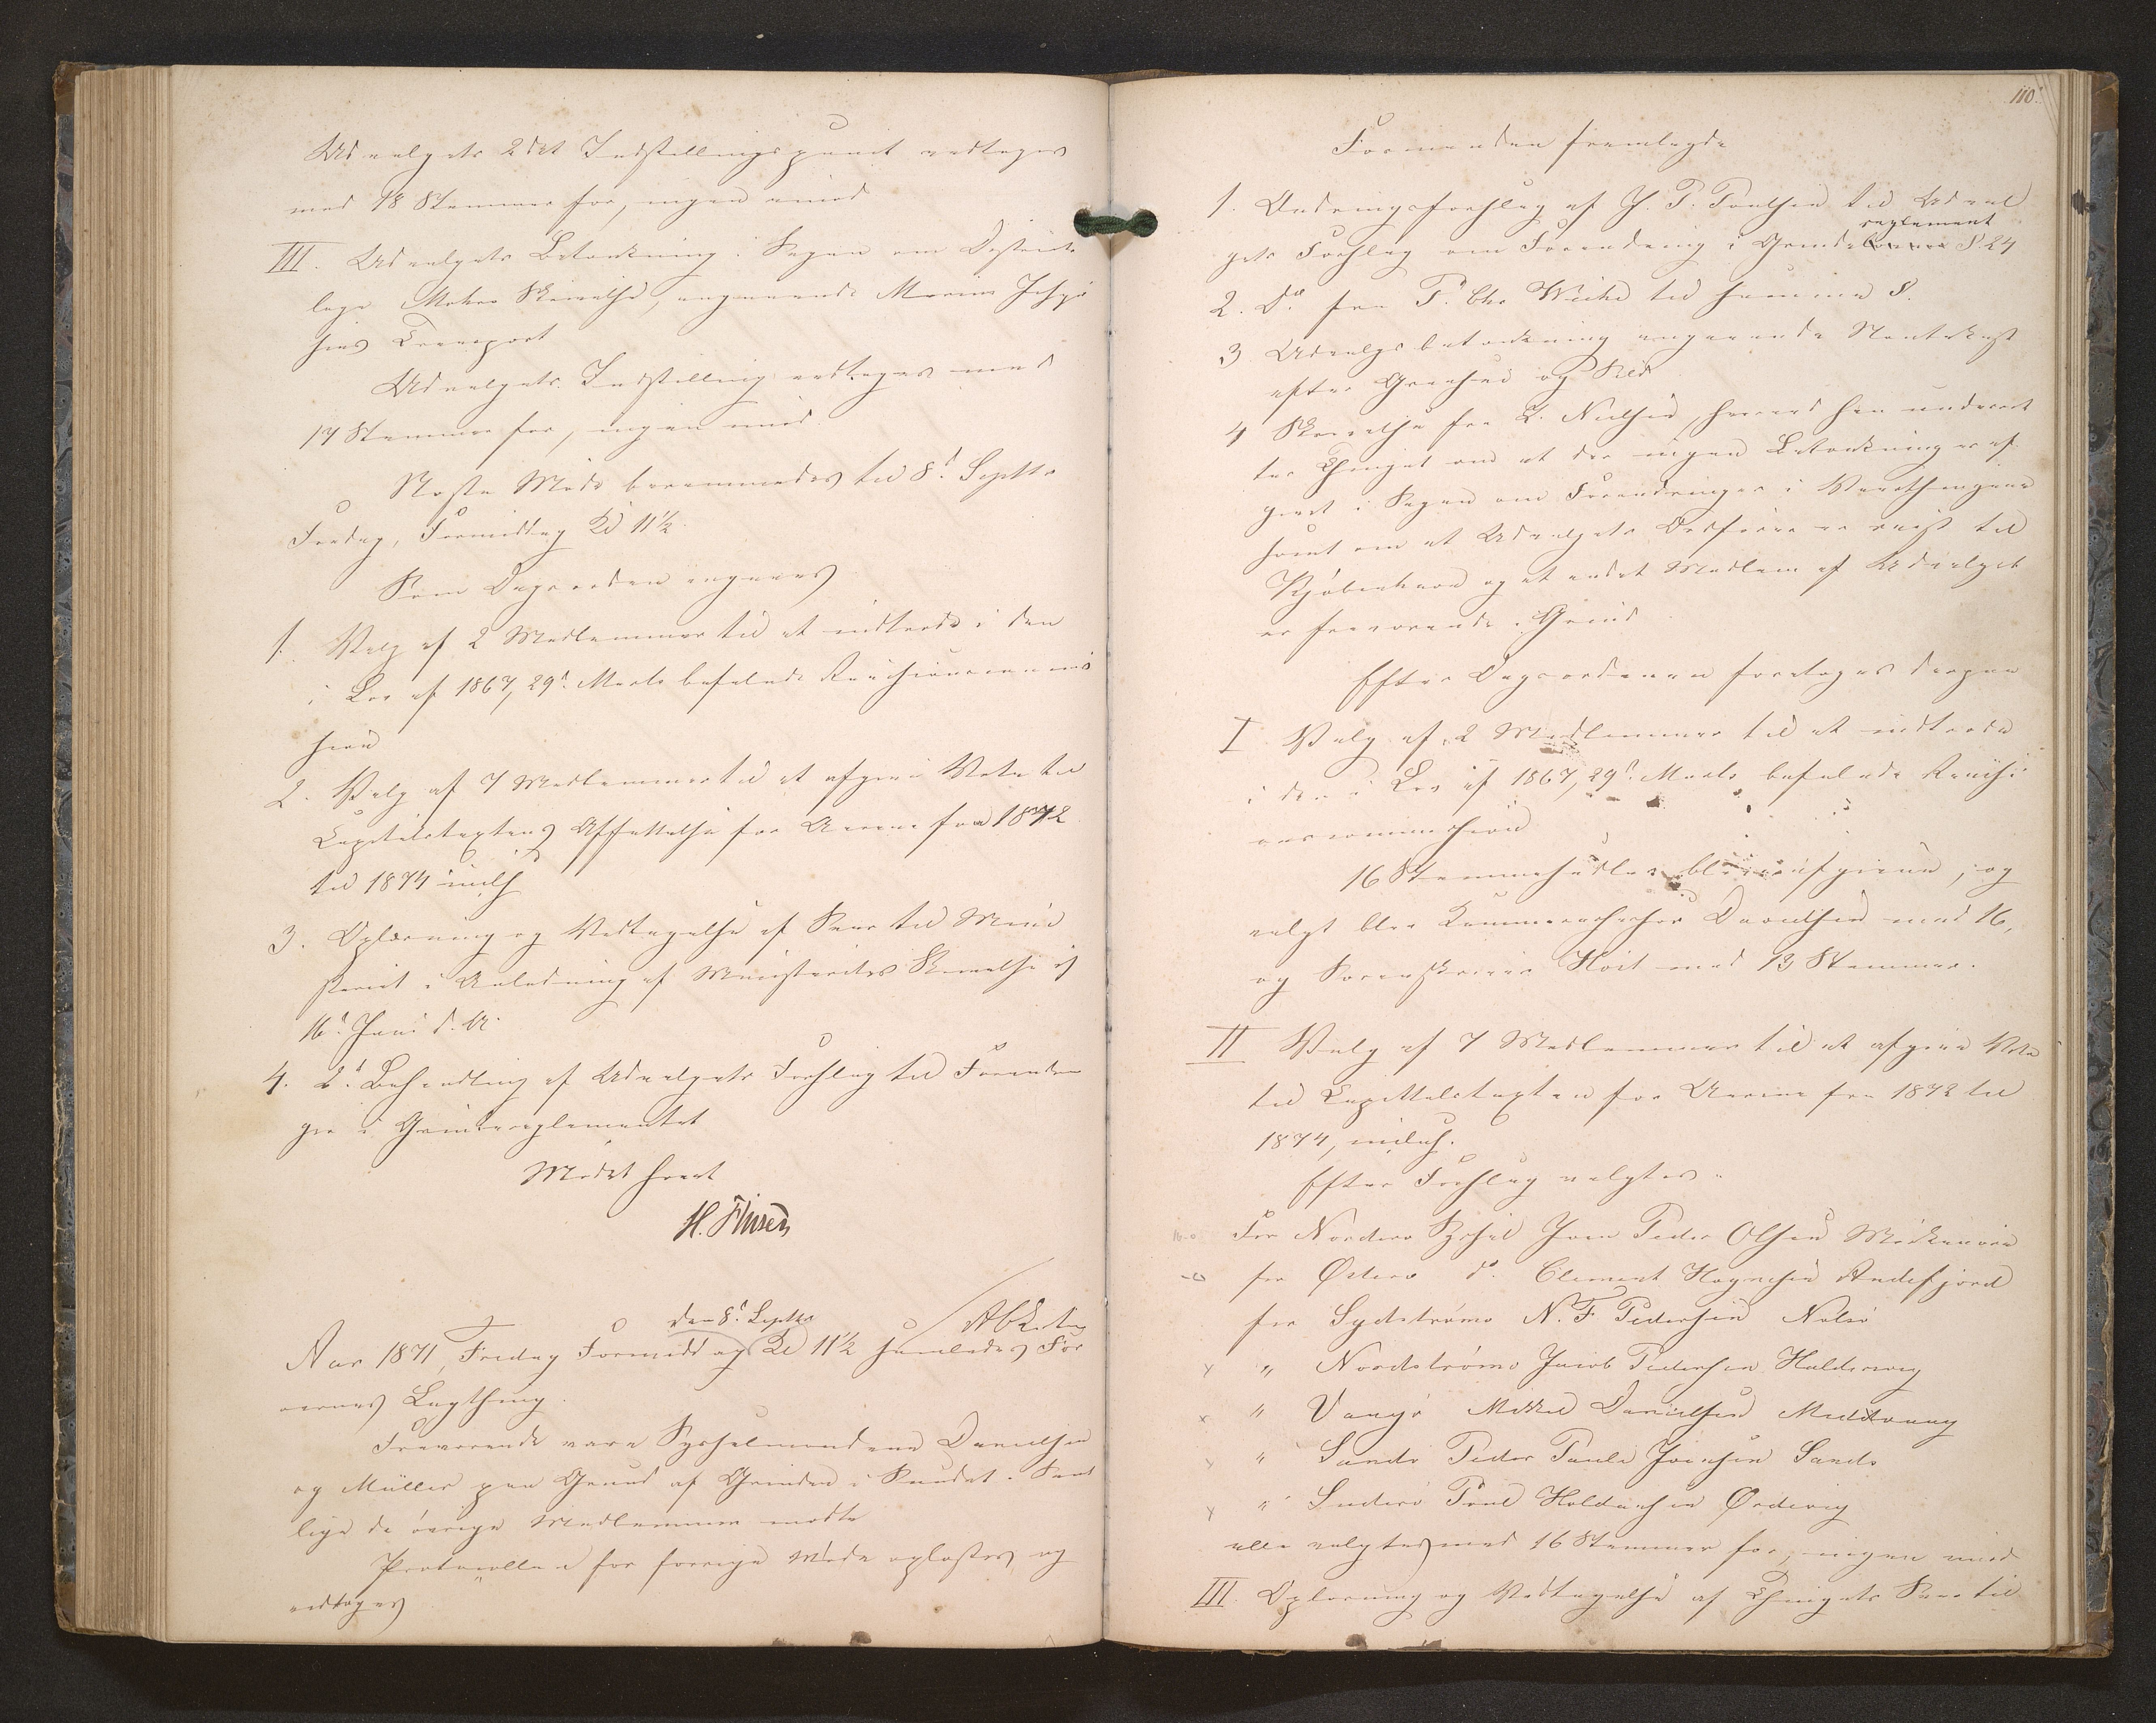 Udvalgets 2det Indstillingspunct vedtoges
med 18 Stemmer for, ingen imod
III. Udvalgets Betænkning i Sagen om Districts
læge Mohrs Skrivelse, angaaende Maren
Transport
Udvalgets Indstilling vedtoges med
17 Stemmer for, ingen imod.
Næste Møde berammedes til 8d. Septbr
Fredag, Formiddag Kl 11½
Som Dagsorden angaves
1. Valg af 2 Medlemmer til at indtræde i den
i Lov af 1867, 29d. Marts befalede Revisionscommis
sion
2. Valg af 7 Medlemmer til at afgive Vota til
Capitelstaxtens Affattelse for Aarene fra 1872
til 1874 incls
3. Oplæsning og Vedtagelse af Svar til Mini
steriet i Anledning af Ministeriets Skrivelse af
16d. Juni d. A.
4. 2d. Behandling af Udvalgets Forslag til Forandrin
ger i Grindereglementet
Mødet hævet
H. Finsen
den 8d. Septbr
Aar 1871, Fredag Formiddag Kl 11½ samledes Fær
øernes Lagthing.
Fraværende vare Sysselmændene Danielsen
og Müller paa Grund af Grinden i Sundet. Samt
lige de øvrige Medlemmer mødte
Protocollen for forrige Møde oplæstes, og
vedtoges
110.
Formanden fremlagde
1. Ændringsforslag af J. P. Poulsen til Udval
reglement
gets Forslag om Forandring i Grinde §. 24
2. Do. fra P. Chr Weihe til samme §.
3. Udvalgsbetænkning angaaende
efter og Sild
4 Skrivelse fra L. Nielsen, hvorved han underret
ter Thinget om at der ingen Betænkning er af
givet i Sagen om Forandringer i Vaarthingene
samt om at Udvalgets Ordfører er reist til
Kjøbenhavn og at andet Medlem af Udvalget
er fraværende i Grind.
Efter Dagsordenen foretoges derpaa
I Valg af 2 Medlemmer til at indtræde
i den i Lov af 1867, 29d. Marts befalede Revisi
onscommission
16 Stemmesedler bleve afgivne, og
valgt blev Danielsen med 16,
og Sorenskriver Høst med 13 Stemmer.
II Valg af 7 Medlemmer til at afgive Vota
til Capittelstaxten for Aarene fra 1872 til
1874, inclus.
Efter Forslag valgtes:
For Norderø Syssel Joen Peder Olsen
for Østerø do. Clement Haynesen Andefjord
for Sydstrømø N. F. Pedersen Nolsø
" Nordstrømø Jacob Pedersen Haldervig
" Vaagø Mikkel Danielsen Midvaag
" Sandø Peder Paule Joensen Sand
" Suderø Poul Holdansen Ørdevig
alle valgtes med 16 Stemmer for, ingen imod
III. Oplæsning og Vedtagelse af Thingets Svar til